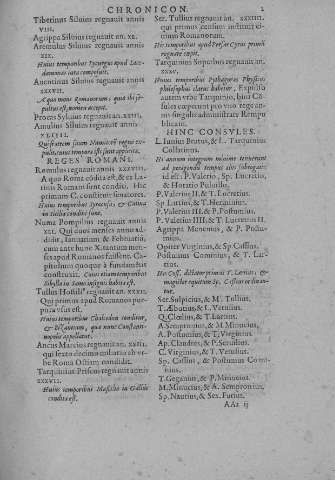 CHRONICON. 2
Tiberinus Siluius regnauit annis
VIII.
Agrippa Siluius regnauit an. XL.
Aremulus Siluius regnauit annis
XIX.
Huius temporibus Lycurgus apud Lace-
dæmones iura composuit.
Auentinus Siluius regnauit annis
XXXVII.
A quo mons Romanorum: quod ibi se-
pultus est, nomen accepit.
Procas Syluius regnauit an. XXIII.
Amulius Siluius regnauit annis
XLIIII.
REGES ROMANI.
Romulus regnauit annis XXXVIII.
A quo Roma códita est, & ex La-
tinis Romani sunt conditi. Hic
primum C. constituit senatores.
Huius temporibus Syracusæ & Catina
in Sicilia conditæ sunt.
Numa Pompilius regnauit annis
XLI. Qui duos menses anno ad-
didit, Ianuarium & Februariū,
cum ante hunc X. tantum men-
ses apud Romanos fuissent. Ca-
pitolium quoque à fundamētis
construxit.
Sibylla in Samo insignis habita est.
Tullus Hostilius regnauit an. XXXII.
Qui primus apud Romanos pur-
pura vsus est.
Huius temporibus Chalcedon conditur,
& Bizantium, quæ nunc Constanti-
nopolis appellatur.
Ancus Marcius regnauit an. XXIII.
qui sexto decimo milliario ab vr-
be Roma Ostiam condidit.
Tarquinius Priscus regnauit annis
XXXVII.
Huius temporibus Massilia in Gallis
condita est.
Ser. Tullius regnauit an. XXXIIII.
qui primus censum instituit ci-
uium Romanorum.
His temporibus apud Persas Cyrus primus
regnare cœpit.
Tarquinius Superbus regnauit an.
XXXV.
Huius temporibus Pythagoras Physicus
philosophus clarus habetur.
autem vrbe Tarquinio, bini Cō-
sules cœperunt pro vno rege an-
nis singulis administrare Rempu
blicam.
HINC CONSVLES.
L. Iunius Brutus, & L. Tarquinius
Collatinus.
Hi annum integrum minime tenuerunt
est: P. Valerio, Sp. Lucretio,
& Horatio Puluillo.
P. Valerius II. & T. Lucretius.
Sp. Lartius, & T. Herminius.
P. Valerius III. & P. Postumius.
P. Valerius IIII. & T. Lucretius II.
Agrippa Menenius, & P. Postu-
mius.
Opiter Virginius, & Sp. Cassius.
Postumius Cominius, & T. Lar-
tius.
His Coss. dictator primus T. Lartius, &
magister equitum Sp. Cassius ordinan-
tur.
Ser. Sulpicius, & M. Tullius.
T. Æbutius & L. Veturius.
Q. Clœlius, & T. Lartius.
A. Sempronius, & M. Minucius.
A. Postumius, & T. Virginius.
Ap. Claudius, & P. Seruilius.
C. Virginius, & T. Vetulius.
Sp. Cassius, & Postumus Comi-
nius.
T. Geganius, & P. Minucius.
M. Minucius, & A. Sempronius.
Sp. Nautius, & Sex. Furius.
AAa ij